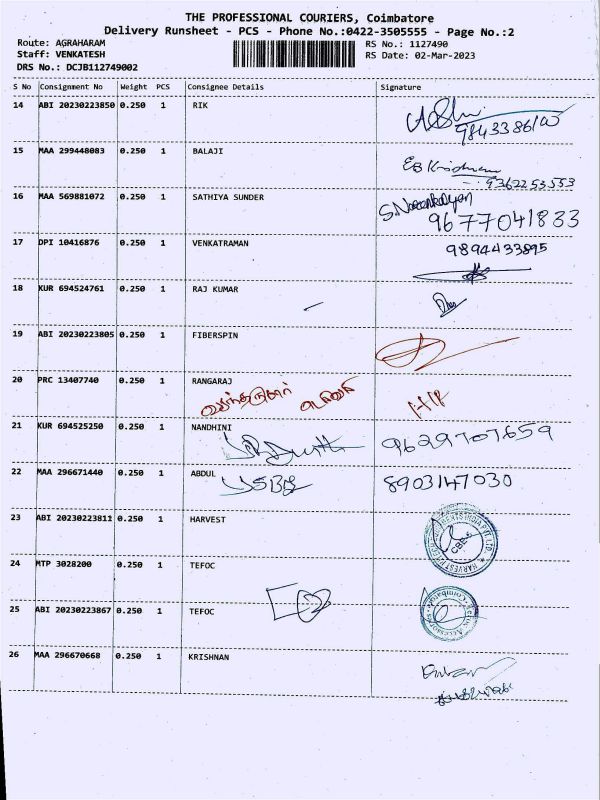 THE PROFESSIONAL COURIERS, Coimbatore
Delivery Runsheet - PCS - Phone No.:0422-3505555 - Page No.:2
Route: AGRAHARAM
RS No.: 1127490
Staff: VENKATESH
RS Date: 02-Mar-2023
DRS No.: DCJB112749002
S No Consignment No Weight PCS Consignee Details Signature
14 ABI 20230223850 0.250 1 RIK
9843386100
15 MAA 299448083 0.250 1 BALAJI
9362253553
16 MAA 569881072 0.250 1 SATHIYA SUNDER
9677041833
17 DPI 10416876 0.250 1 VENKATRAMAN 9894433895
18 KUR 694524761 0.250 1 RAJ KUMAR
19 ABI 20230223805 0.250 1 FIBERSPIN
20 PRC 13407740 0.250 1 RANGARAJ
21 KUR 694525250 0.250 1 NANDHINI 9629707659
22 MAA 296671440 0.250 1 ABDUL 8903147030
23 ABI 20230223811 0.250 1 HARVEST
24 MTP 3028200 0.250 1 TEFOC
25 ABI 20230223867 0.250 1 TEFOC
26 MAA 296670668 0.250 1 KRISHNAN